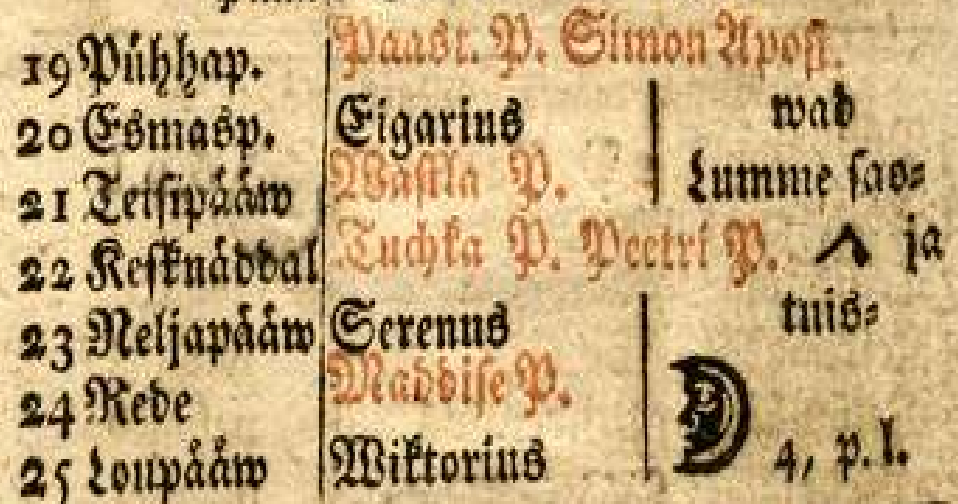 19 Pühhap. Paast. P. Simon Apost.
20 Esmasp. Eigarius wad
21 Teisipääw Wastla P. Lumme sao⸗
22 Kesknäddal Tuchka P. Peetri P. ja
23 Neljapääw Serenus tuis⸗
24 Rede Maddise P.
25 Loupääw Wiktorius 4, p. l.